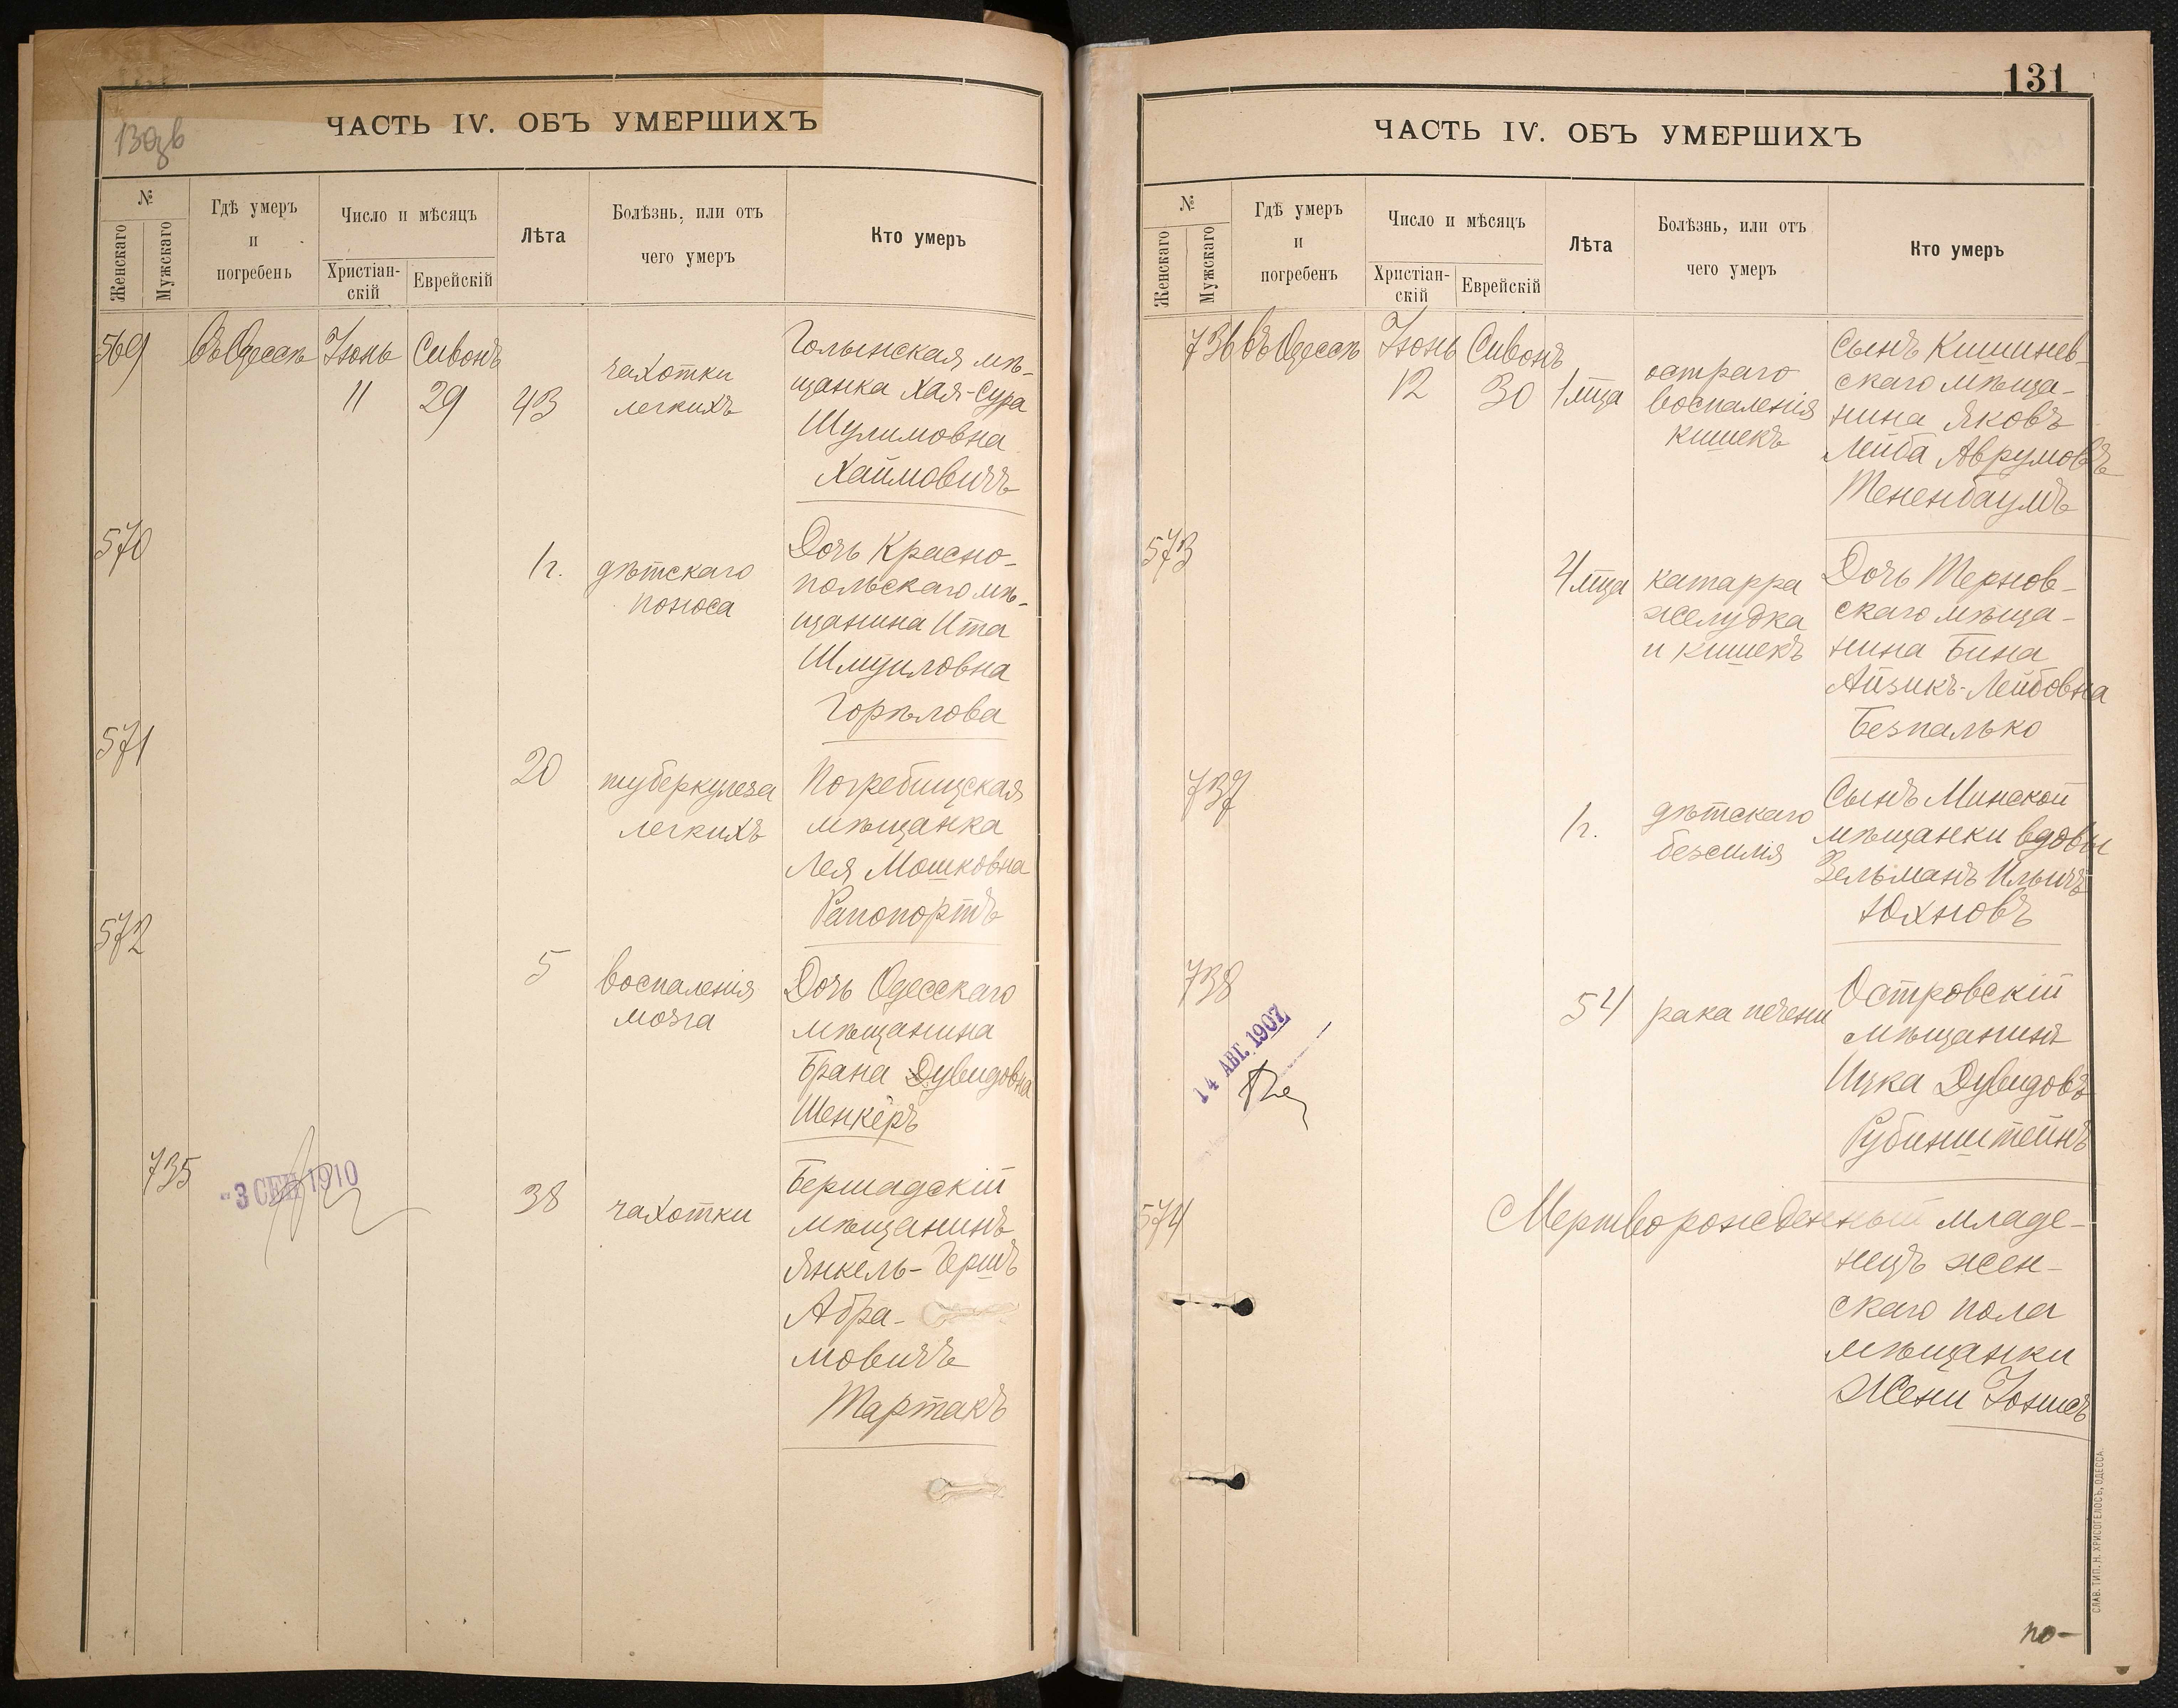 130 об
ЧАСТЬ IV. ОБЪ УМЕРШИХЪ
№
Женскаго
Мужскаго
Гдѣ умеръ
и
погребенъ
Число и мѣсяцъ
Христіан-
скій
Еврейскій
Лѣта
Болѣзнь, или отъ
чего умеръ
Кто умеръ
569 Въ Одессѣ Іюнь Сивонъ
11 29 43
чахотки
легкихъ
Голынская мѣ-
щанка Хая-Сура
Шулимовна
Хаймовичъ
570
1 г. дѣтскаго
поноса
Дочь Красно-
польскаго мѣ-
щанина Ита
Шмуиловна
Горѣлова
571
20 туберкулеза
легкихъ
Погребищская
мѣщанка
Лея Мошковна
Рапопортъ
572
5 воспаленія
мозга
Дочь Одесскаго
мѣщанина
Брана Дувидовна
Шенкеръ
735
-3 СЕН 1910
38 чахотки
Бершадскій
мѣщанинъ
Янкель-Гершъ
Абра-
мовичъ
Тартакъ
131
ЧАСТЬ IV. ОБЪ УМЕРШИХЪ
№
Женскаго
Мужскаго
Гдѣ умеръ
и
погребенъ
Число и мѣсяцъ
Христіан-
скій
Еврейскій
Лѣта
Болѣзнь, или отъ
чего умеръ
Кто умеръ
736 Въ Одессѣ Іюнь Сивонъ
12 30 1 мца
остраго
воспаленія
кишекъ
Сынъ Кишинев-
скаго мѣща-
нина Яковъ
Лейба Аврумовъ
Тененбаумъ
573
4 мца катарра
желудка
и кишекъ
Дочь Тернов-
скаго мѣща-
нина Бина
Айзикъ-Лейбовна
Безпалько
737
1 г. дѣтскаго
безсилія
Сынъ Минской
мѣщанки вдовы
Зельманъ Ильичъ
Юхновъ
738
14 АВГ. 1907
54 рака печени
Островскій
мѣщанинъ
Ицка Дувидовъ
Рубинштейнъ
574
Мертворожденный младе-
нецъ жен-
скаго пола
мѣщанки
Жени
СЛАВ. ТИП. Н. ХРИСОГЕЛОСЪ, ОДЕССА.
по-